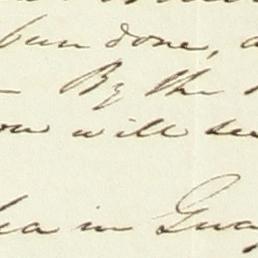 been done, a
By the
ou will se
ea in Gua